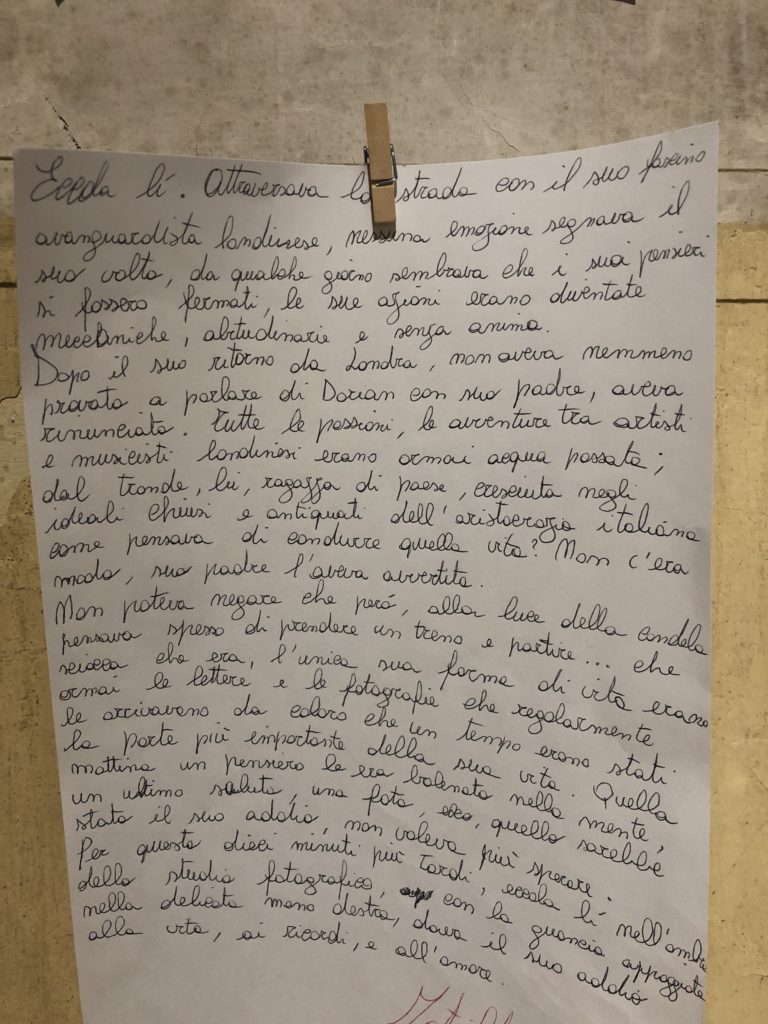 Eccola lí. Attraversava la strada con il suo fascino
avanguardista londinese, nessuna emozione segnava il
suo volto, da qualche giorno sembrava che i suoi pensieri
si fossero fermati, le sue azioni erano diventate
meccaniche, abitudinarie e senza anima.
Dopo il suo ritorno da Londra, non aveva nemmeno
provato a parlare di Dorian con suo padre, aveva
rinunciato. Tutte le passioni, le avventure tra artisti
e musicisti londinesi erano ormai acqua passata;
dal tronde, lei, ragazza di paese, cresciuta negli
ideali chiusi e antiquati dell'aristocrazia italiana
come pensava di condurre quella vita? Non c'era
modo, suo padre l'aveva avvertita.
Non poteva negare che peró, alla luce della candela
pensava spesso di prendere un treno e partire... che
sciocca che era, l'unica sua forma di vita erano
ormai le lettere e le fotografie che regolarmente
le arrivavano da coloro che un tempo erano stati
la parte più importante della sua vita. Quella
mattina un pensiero le era balenato nella mente,
un ultimo saluto, una foto, quello sarebbe
stato il suo addio, non voleva più sperare.
Per questo dieci minuti più tardi, eccola lí nell'ombra
dello studio fotografico, con la guancia appoggiata
nella delicata mano destra, dava il suo addio
alla vita, ai ricordi, e all'amore.